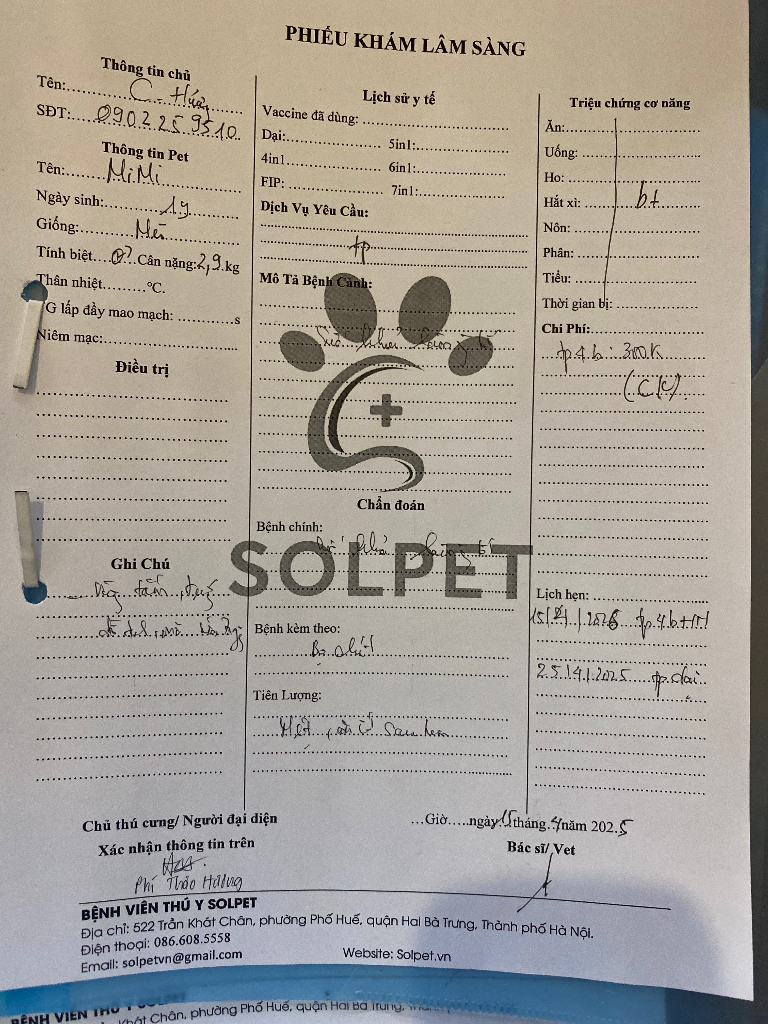 PHIẾU KHÁM LÂM SÀNG
Thông tin chủ
Tên: C Hường
SĐT: 090225 9510
Thông tin Pet
Tên: MiMi
Ngày sinh: 19
Giống: Mèo
Tính biệt. Cân nặng: 2,9 kg
Thân nhiệt.........°C.
TG lấp đầy mao mạch: ............s
Niêm mạc:
Điều trị
Ghi Chú
tắm
Lịch sử y tế
Vaccine đã dùng:
Dại: 5in1:
4in1 6in1:
FIP: 7in1:
Dịch Vụ Yêu Cầu:
tp
Mô Tả Bệnh Cảnh:
Chẩn đoán
Bệnh chính:
Bệnh kèm theo:
Tiên Lượng:
Mệt sau tiêm
Triệu chứng cơ năng
Ăn:
Uống:
Ho:
Hắt xì: bt
Nôn:
Phân:
Tiểu:
Thời gian bị:
Chi Phí:
tp 4b: 300K
(CK)
Lịch hẹn:
tp 4b
25/4/2025 tp dại
SOLPET
Chủ thú cưng/ Người đại diện
Xác nhận thông tin trên
Phí Thảo Hường
...Giờ.....ngày 15 tháng 4 năm 2025
Bác sĩ/ Vet
BỆNH VIÊN THÚ Y SOLPET
Địa chỉ: 522 Trần Khát Chân, phường Phố Huế, quận Hai Bà Trưng, Thành phố Hà Nội.
Điện thoại: 086.608.5558
Email: solpetvn@gmail.com Website: Solpet.vn
BỆNH VIÊN THÚ Y SOLPET
Khát Chân, phường Phố Huế, quận Hai Bà Trưng,